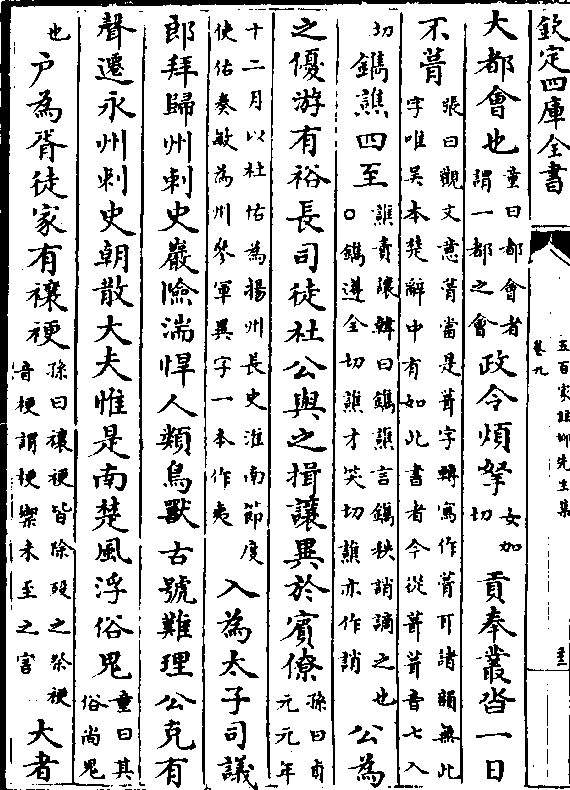 欽定四庫全書
五百家註柳先生集
卷九
大都會也童曰都會者謂一都之會政令煩拏女加切貢奉叢沓一日
不葺張曰觀文意葺當是葺字轉寫作葺耳諸韻無此字唯吴本楚辭中有如此書者今從葺葺音七入
切鐫譙四至譙責讓韓曰鐫譙言鐫秩誚讁之也○鐫遵全切譙才笑切譙亦作誚公為
之優游有裕長司徒杜公與之揖讓異於賓僚孫曰貞元元年
十二月以杜佑為揚州長史淮南節度使佑奏敏為州參軍異字一本作夷入為太子司議
郎拜歸州刺史巖險湍悍人類鳥獸古號難理公克有
聲遷永州刺史朝散大夫惟是南楚風浮俗鬼童曰其俗尚鬼
也户為胥徒家有禳梗孫曰禳梗皆除殃之祭梗音梗謂梗禦未至之害大者